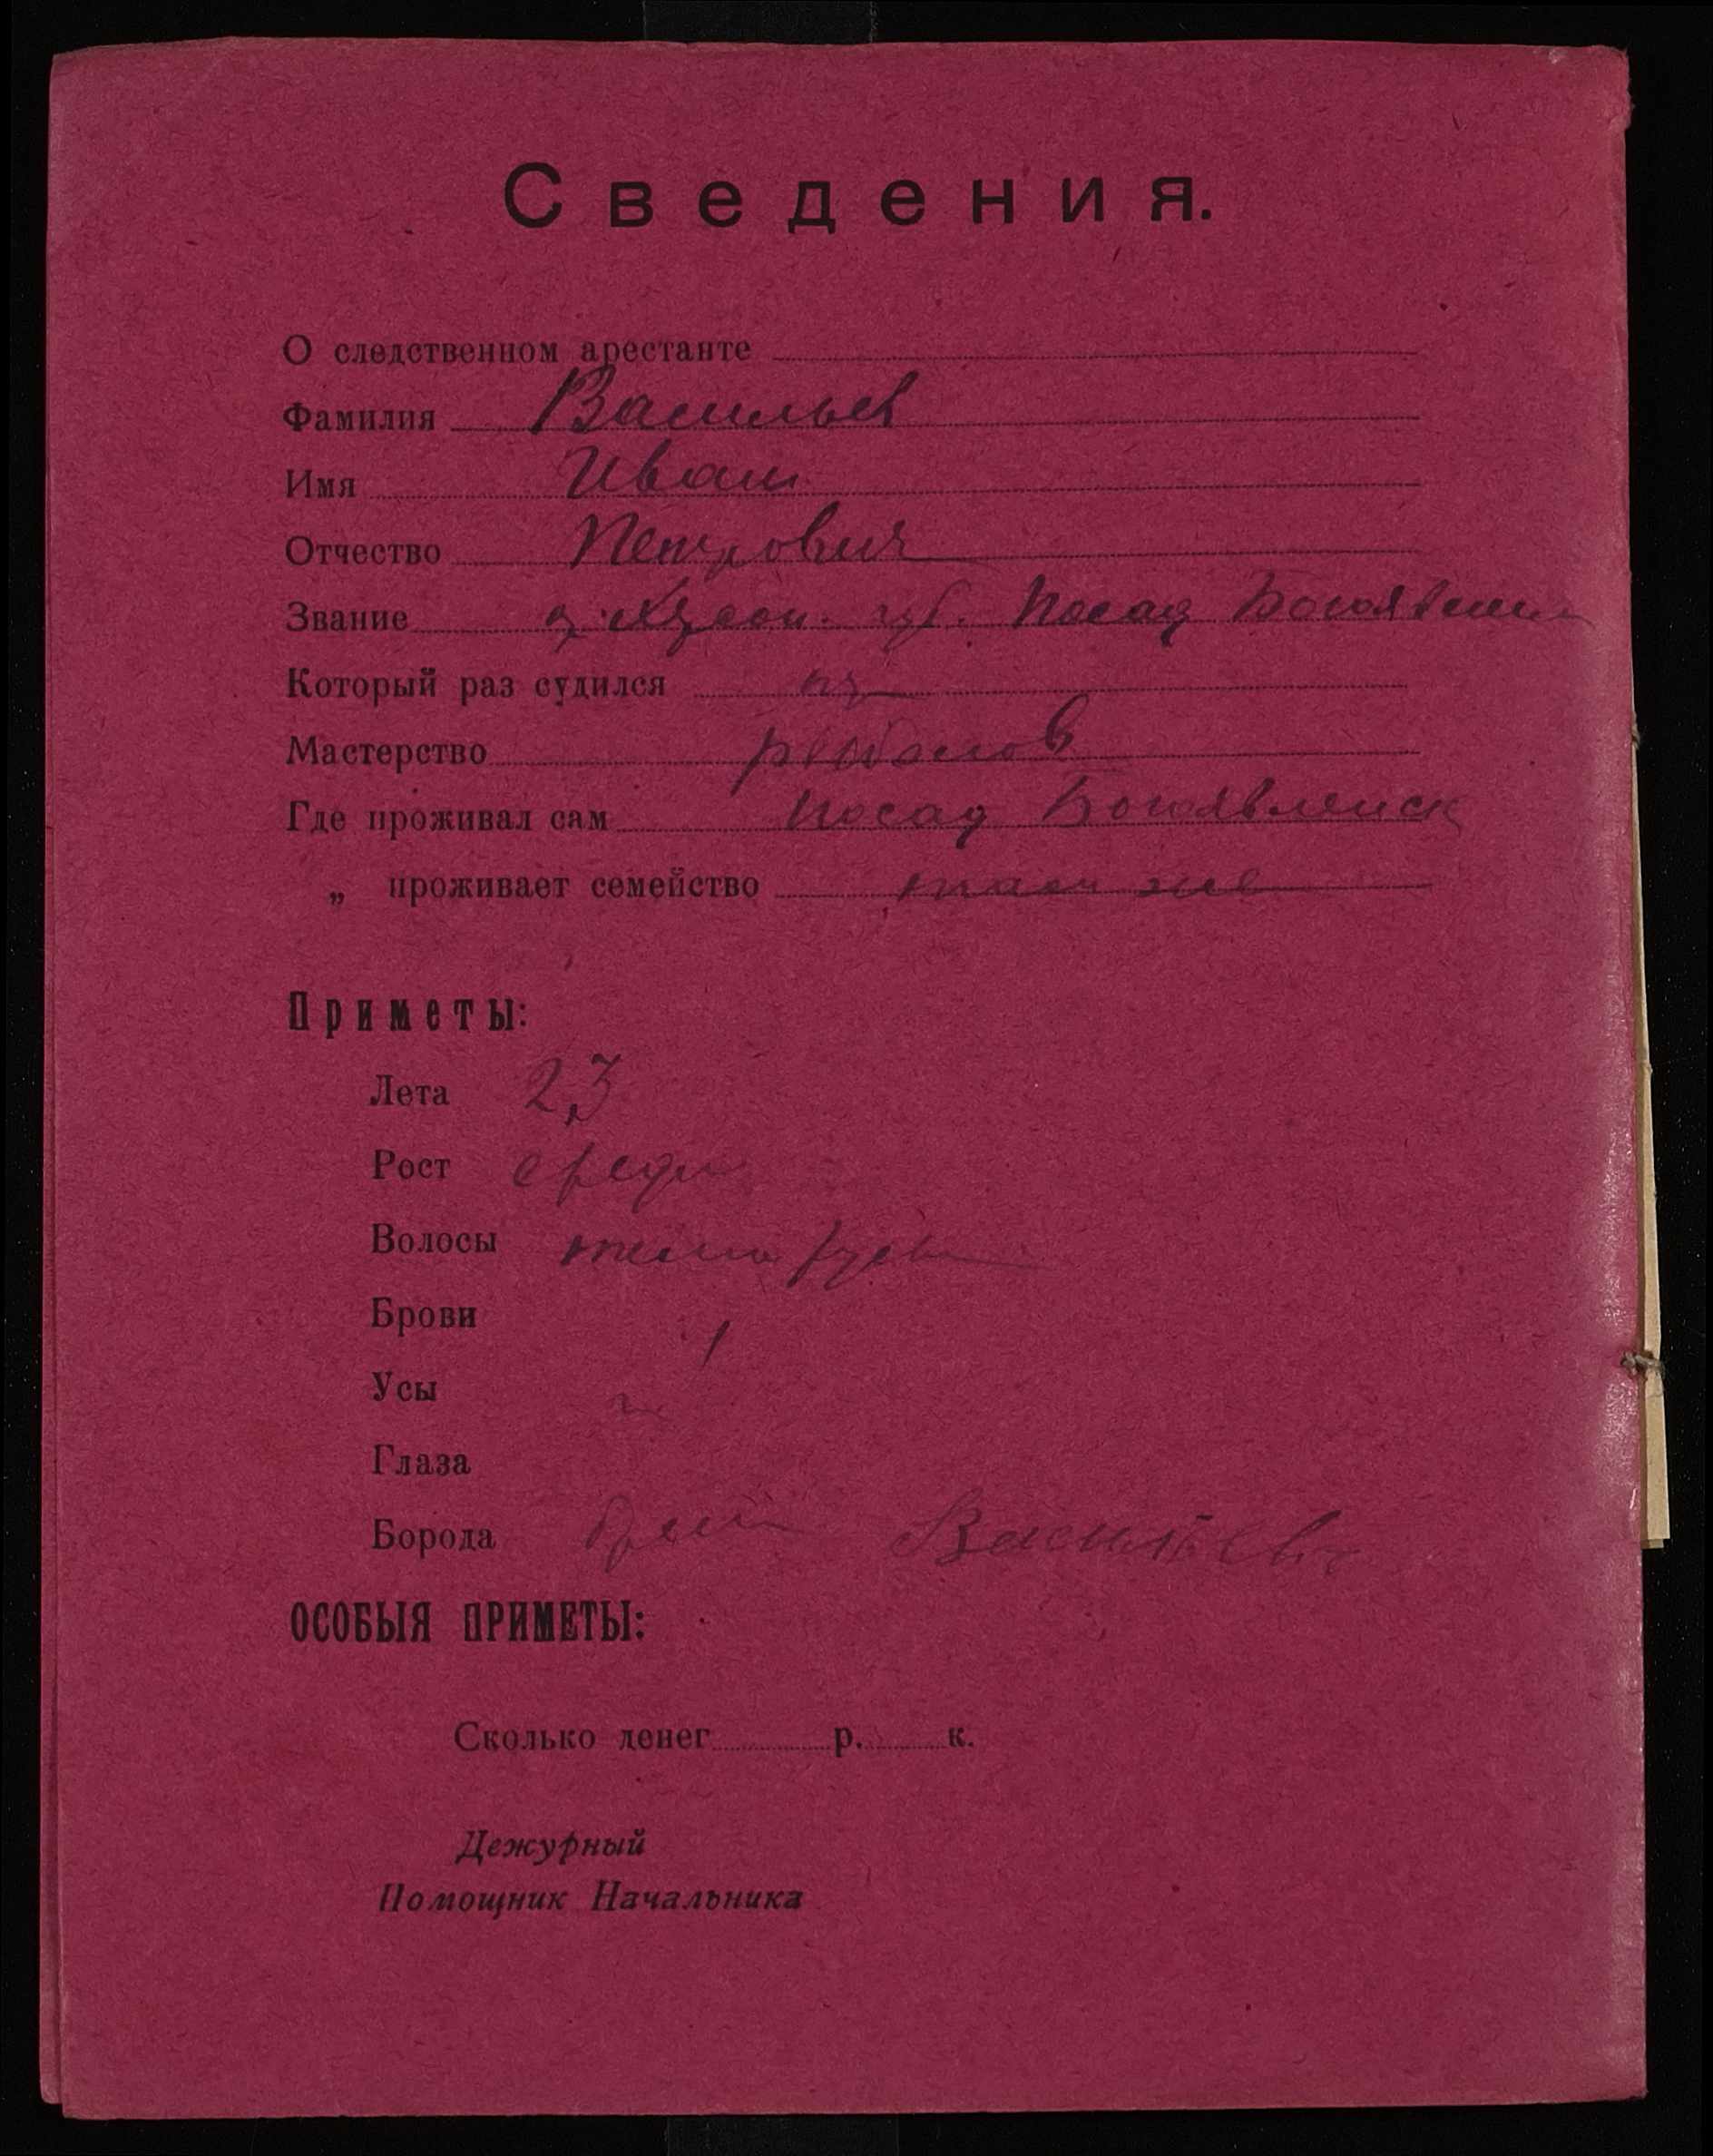 Сведения.
О следственном арестанте
Фамилия Васильев
Имя Иван
Отчество Петрович
Звание губ. Посад Богоявленск
Который раз судился
Мастерство
Где проживал сам Посад Богоявленск
„ проживает семейство там же
Приметы:
Лета 23
Рост средн
Волосы темно русы
Брови
Усы
Глаза
Борода Васильев
ОСОБЫЯ ПРИМЕТЫ:
Сколько денег р. к.
Дежурный
Помощник Начальника